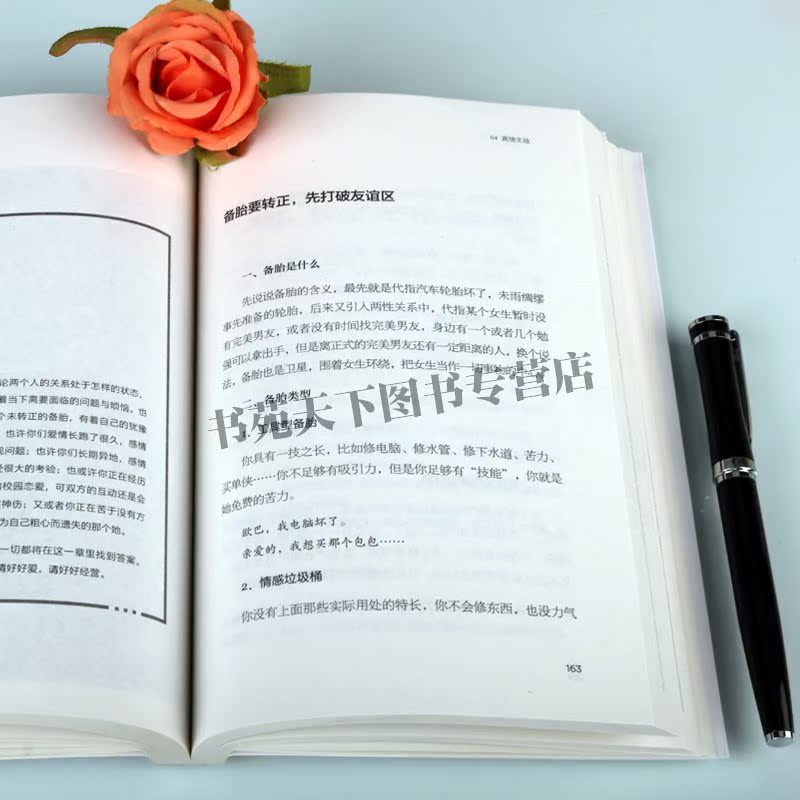 论两个人的关系处于怎样的状态,
着当下需要面临的问题与烦恼。也
个未转正的备胎,有着自己的犹豫
也许你们爱情长跑了很久,感情
现问题;也许你们长期异地,感情
受很大的考验;也或许你正在经历
校园恋爱,可双方的互动还是会
神伤;又或者你正在苦于没有方
为自己粗心而遗失的那个她。
一切都将在这一章里找到答案。
请好好爱,请好好经营。
04
备胎要转正,先打破友谊区
一、备胎是什么
先说说备胎的含义,最先就是代指汽车轮胎坏了,未雨绸缪
事先准备的轮胎,后来又引入两性关系中,代指某个女生暂时没
有完美男友,或者没有时间找完美男友,身边有一个或者几个勉
强可以拿出手,但是离正式的完美男友还有一定距离的人,换个说
法,备胎也是卫星,围着女生环绕,把女生当作一切事物的
二、备胎类型
1.工具型备胎
你具有一技之长,比如修电脑、修水管、修下水道、苦力、
买单侠……你不足够有吸引力,但是你足够有“技能”,你就是
她免费的苦力。
欧巴,我电脑坏了。
亲爱的,我想买那个包包……
2.情感垃圾桶
你没有上面那些实际用处的特长,你不会修东西,也没力气
163
书苑天下图书专营店